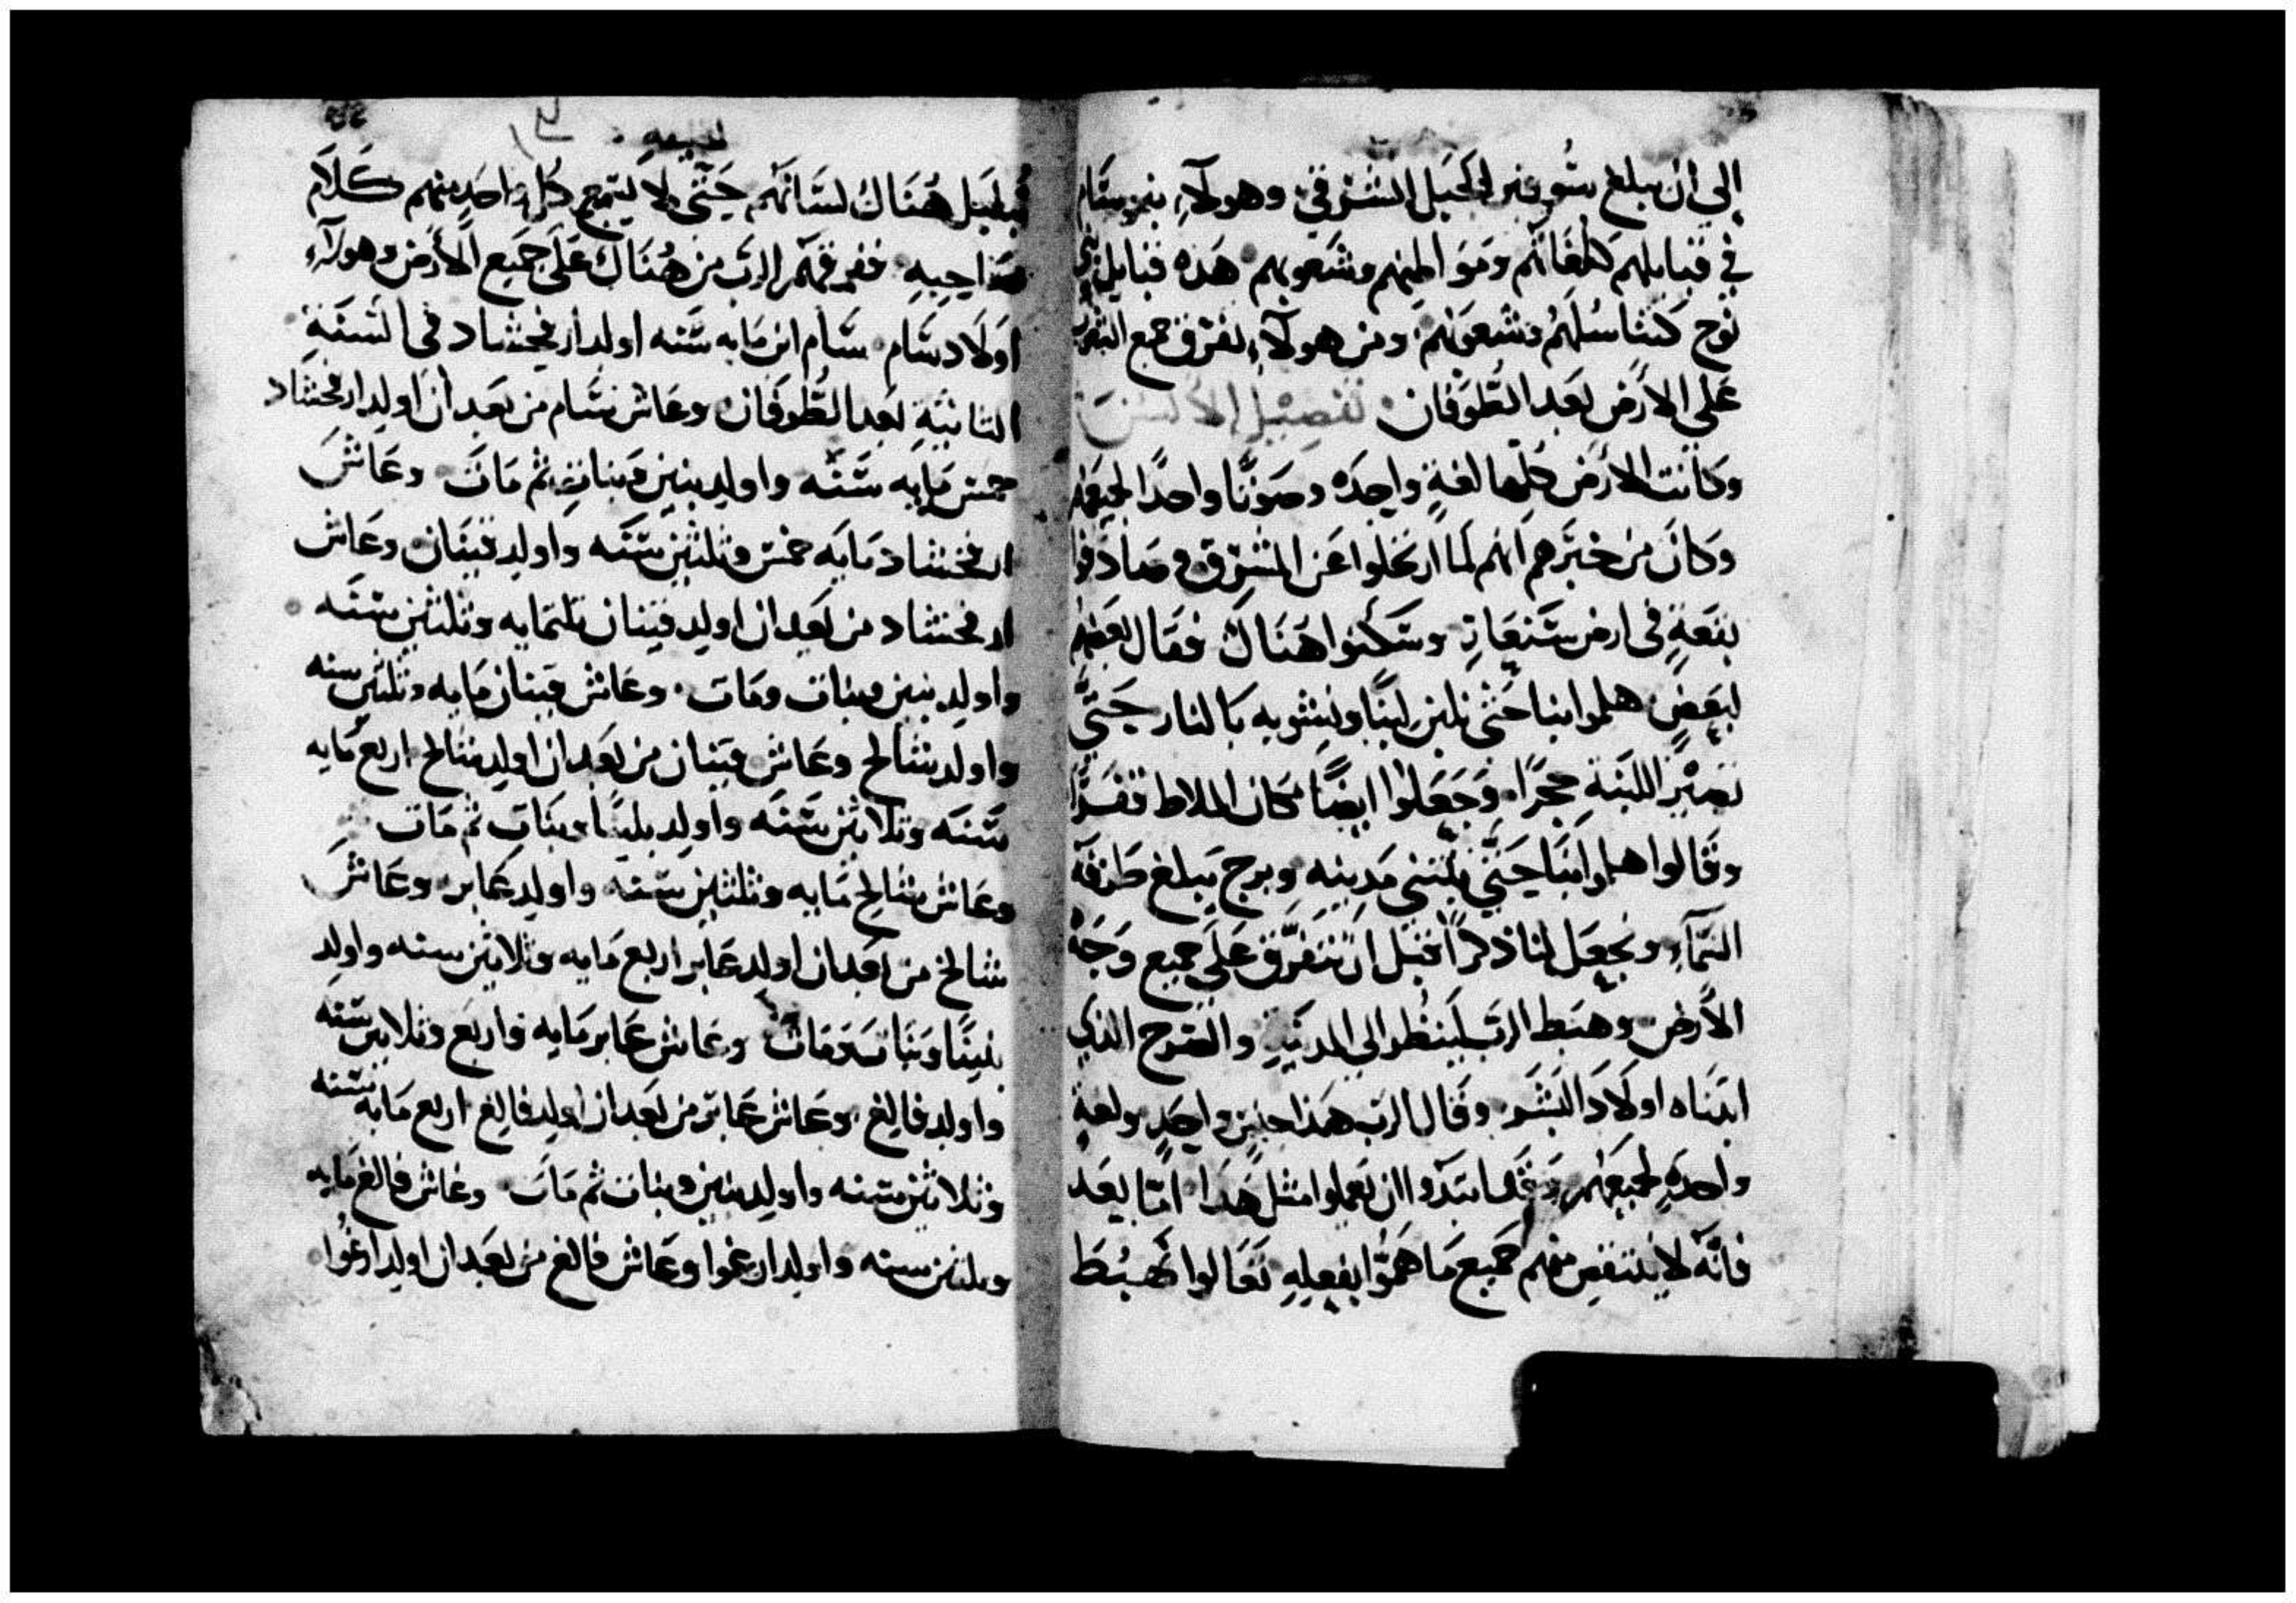 إلي ان يبلغ سُوفير الجَبَل الشرقي وهولآءِ بنو سَام
في قبايلهم كلغاتهم ومَوَاطِنهم وشعوبهم هَذه قبايل بَني
نوح كتناسُلهُم وشعوبهُم ومن هولآءِ تفرق جميع الشعوب
عَلي الارَض بَعد الطُوفان تفصيل الالسُن
وكانت الارَض كلِها لغةٍ واحِدَه وصَوتًا واحدًا لجيعهم
وَكانَ من خبَرهم انهم لمَا ارتحَلوا عَن المشرق صَادَفوا
بقعَةٍ في ارض سَنعَار وسَكنوا هَنَاك فقال بعضهم
لبعَضٍ هلموا بنا حَتي نلبن لبَنًا ونشويه بَالنار حَتيَّ
تصيْر اللبَنةِ حجرًا وَجَعَلوا ايضًا مكان الملاط قفَرًا
وقَالوا هلموا بنَا حَتيَّ نبَتني مَدينه وبرج يَبلغ طَرفَهَ
السَمآءِ ونجعَل لنا ذكرًا قبَل ان نتفرَّق عَلَي جميع وَجَه
الأَرض وهَبَط الرَب ليَنظُر الي المدينَةِ والصَرح الذي
ابتنَاه اولَادَ البَشَر وقَال الرَب هَذا جنسٍ واحِدٍ ولغةٍ
واحدَةٍ لجميعَهُم وقَد ابتدَوا ان يَعملوا مثل هَذَا امَّا بعَد
فانَّه لا ينتقص منهم جَميع مَا هَمُوا بفعلِهِ تعَالوا نهبُطَ
فنبلبَل هُنَاك لسَانهم حَتيَّ لا يسَمع كُل واحَد منهم كَلاَم
صَاحِبِهِ ففرقهم الرَب من هُنَاك عَلَي جميع الأَرض وهولآءِ
اوَلَاد سَام سَام ابن مَايه سَنه اولد ارفخشاد في السَنَةِ
الثانيَةِ بعد الطُوفان وعَاش سَام من بَعد ان اولد ارفخشاد
خمس مَايه سَنَه واولد بنين وبناتٍ ثم مَات وعَاشَ
ارفخشاد مَايَه خمس وثلثين سَنَه واولد قينَان وعَاش
ارفخشاد من بَعد ان اولد قينان ثلثمايه وثلثين سَنَه
واولد بنين وبنات ومَات وعَاش قينان مَايه وثلثين سنه
واولد شالح وعَاش قينان من بَعد ان اولد شالح اربع مَايه
سَنَه وثلاثين سَنَه واولد بنينًا وبنَات ثم مَات
وعَاش شالح مَايه وثلثين سَنه واولد عَابر وعَاشَ
شالح من بعَد ان اولد عَابر اربع مَايه وثلاثين سنه واولد
بنينًا وبَنَات ومَات وعَاش عَابر مَايه واربَع وثلاثين سَنه
واولد فالغ وعَاش عَابر من بَعَد ان اولد فالغ اربع مَايه سَنه
وثلاثين سنه واولد بنين وبنات ثم مَات وعَاش فالغ مَايه
وثلثين سنه واولد ارغوا وعَاش فالغ من بعَد ان اولد ارغوا